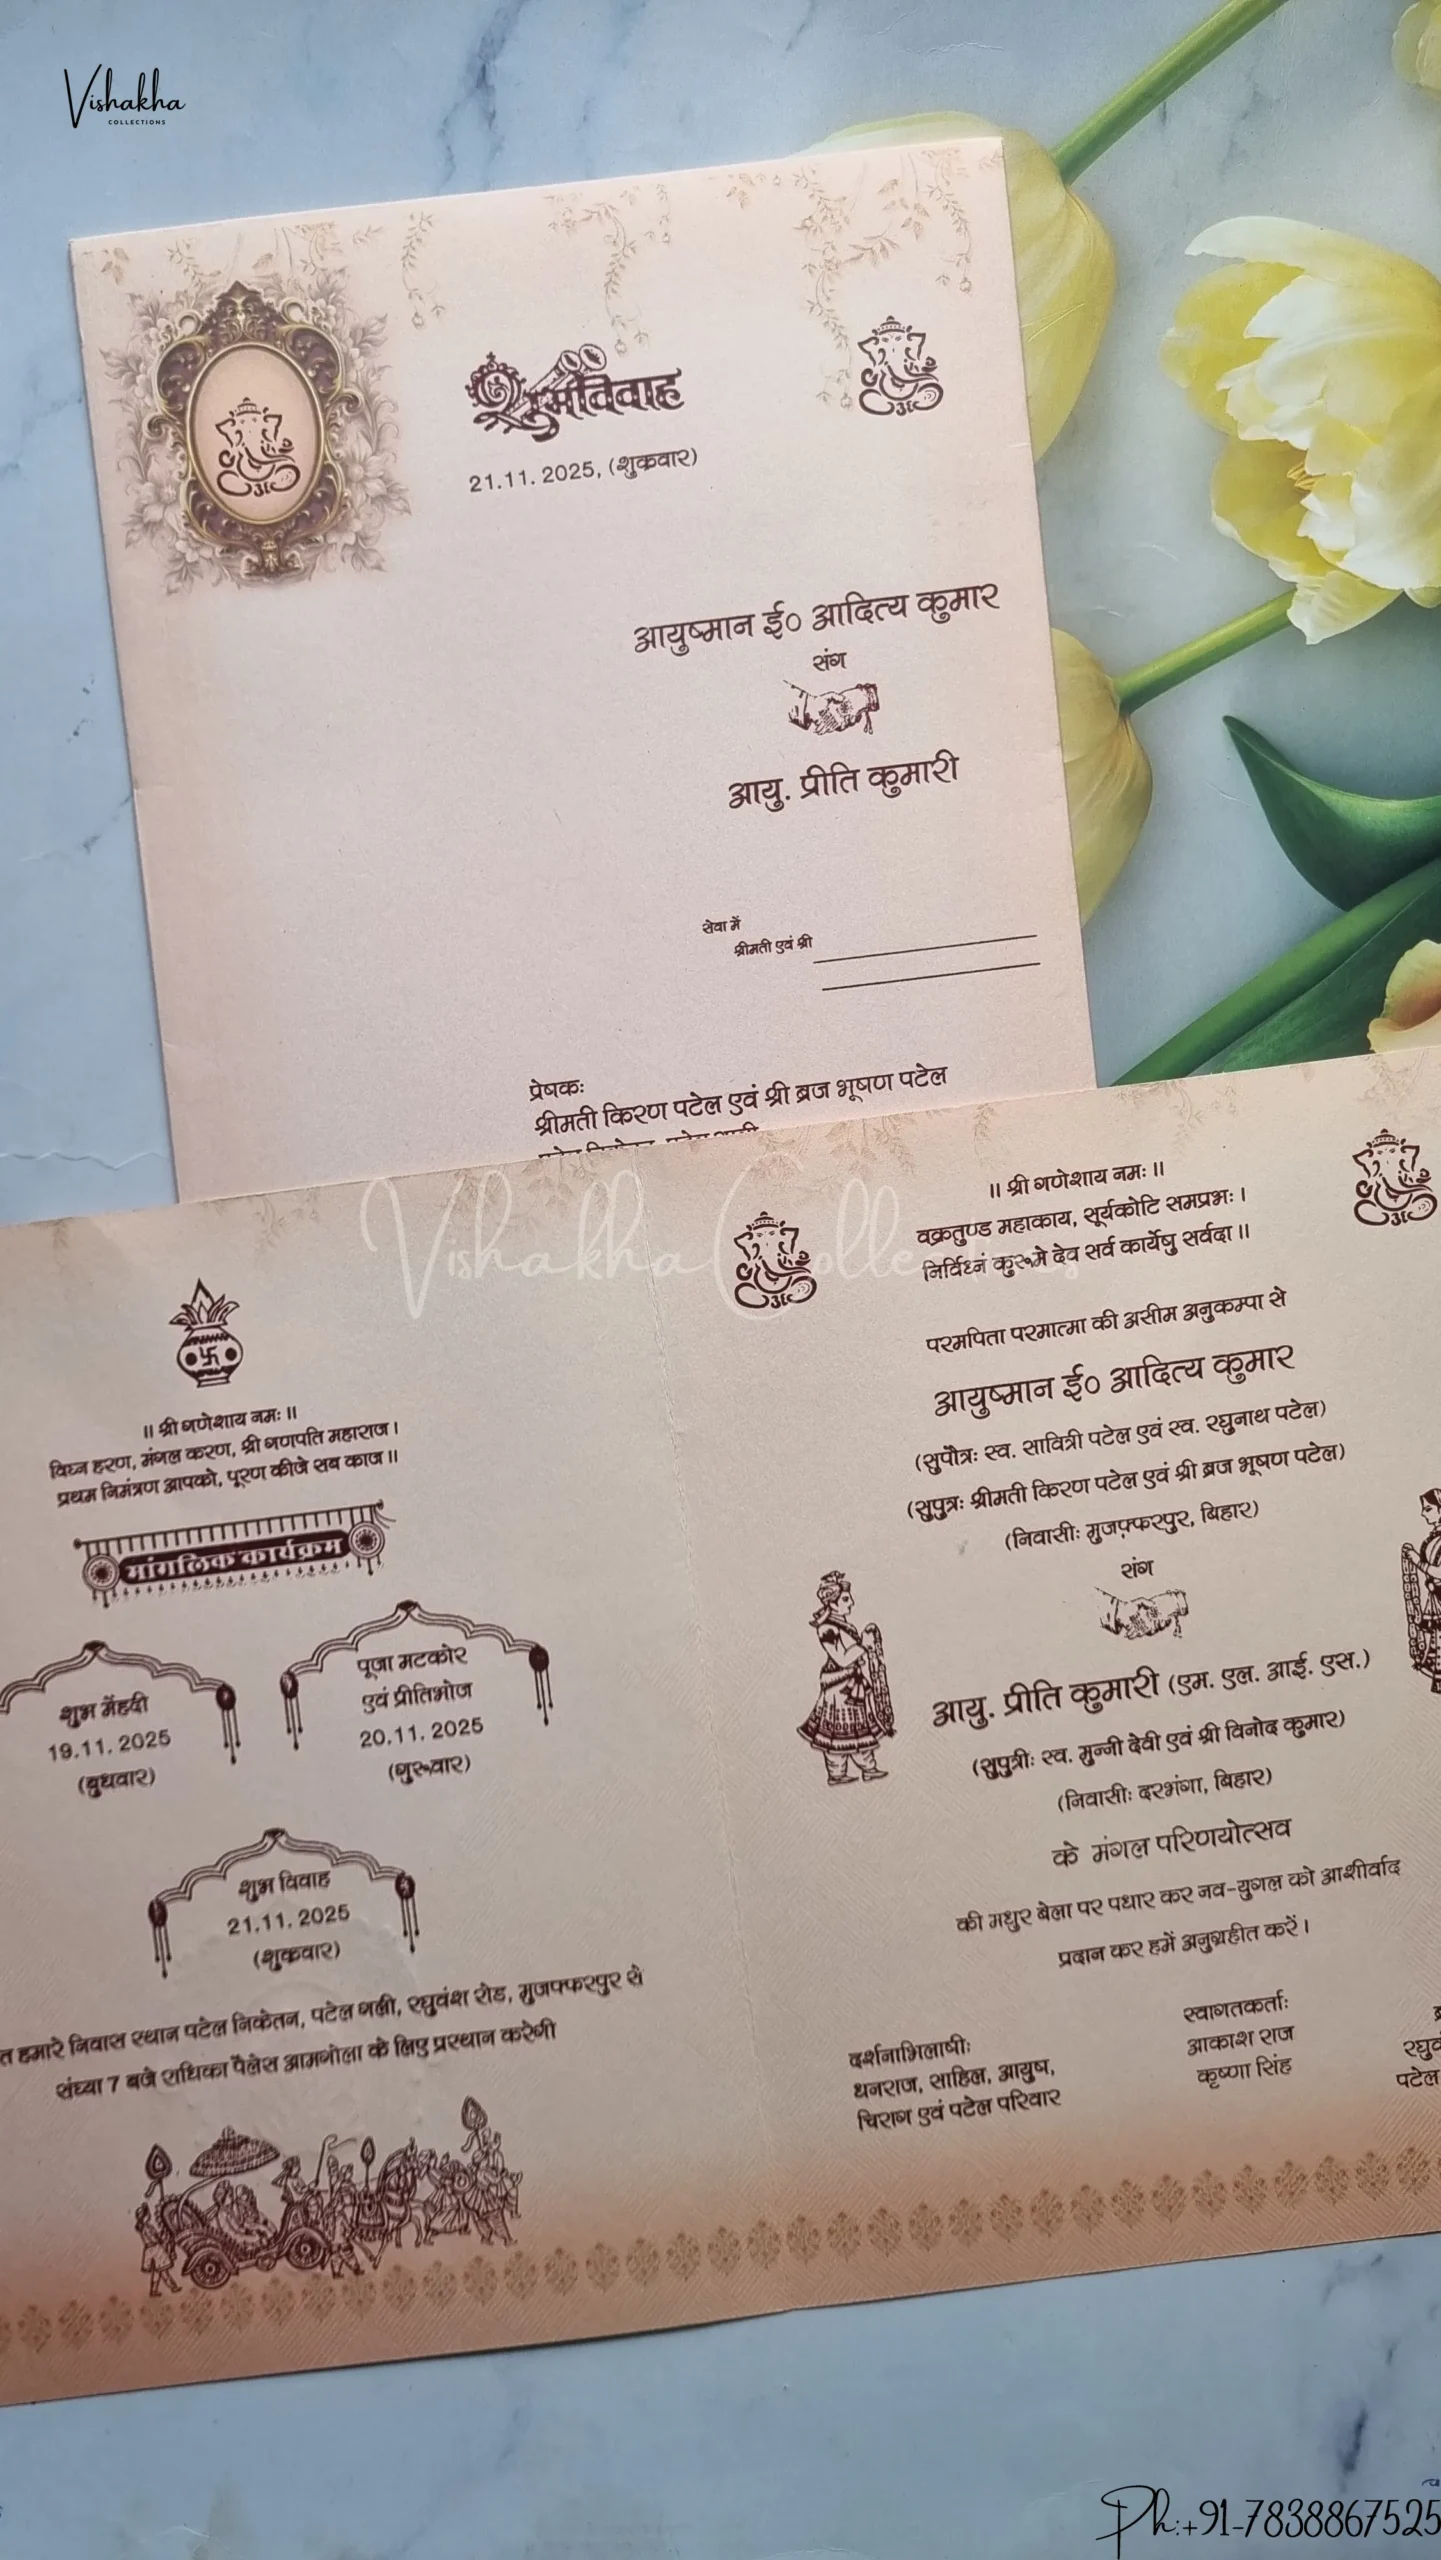 Vishakha
COLLECTIONS
शुभविवाह
21.11.2025, (शुक्रवार)
आयुष्मान ई० आदित्य कुमार
संग
आयु. प्रीति कुमारी
सेवा में
श्रीमती एवं श्री
प्रेषकः
श्रीमती किरण पटेल एवं श्री ब्रज भूषण पटेल
Vishakha Collections
॥ श्री गणेशाय नमः ॥
विघ्न हरण, मंगल करण, श्री गणपति महाराज।
प्रथम निमंत्रण आपको, पूरण कीजे सब काज॥
मांगलिक कार्यक्रम
शुभ मेंहदी
19.11.2025
(बुधवार)
पूजा मटकोर
एवं प्रीतिभोज
20.11.2025
(गुरूवार)
शुभ विवाह
21.11.2025
(शुक्रवार)
हमारे निवास स्थान पटेल निकेतन, पटेल गली, रघुवंश रोड, मुजफ्फरपुर से
संध्या 7 बजे राधिका पैलेस आमगोला के लिए प्रस्थान करेगी
॥ श्री गणेशाय नमः ॥
वक्रतुण्ड महाकाय, सूर्यकोटि समप्रभः।
निर्विघ्नं कुरूमे देव सर्व कार्येषु सर्वदा॥
परमपिता परमात्मा की असीम अनुकम्पा से
आयुष्मान ई० आदित्य कुमार
(सुपौत्रः स्व. सावित्री पटेल एवं स्व. रघुनाथ पटेल)
(सुपुत्रः श्रीमती किरण पटेल एवं श्री ब्रज भूषण पटेल)
(निवासीः मुजफ़्फरपुर, बिहार)
संग
आयु. प्रीति कुमारी (एम. एल. आई. एस.)
(सुपुत्रीः स्व. मुन्नी देवी एवं श्री विनोद कुमार)
(निवासीः दरभंगा, बिहार)
के मंगल परिणयोत्सव
की मधुर बेला पर पधार कर नव-युगल को आशीर्वाद
प्रदान कर हमें अनुग्रहीत करें।
दर्शनाभिलाषीः
धनराज, साहिल, आयुष,
चिराग एवं पटेल परिवार
स्वागतकर्ताः
आकाश राज
कृष्णा सिंह
पटेल
Ph:+91-7838867525